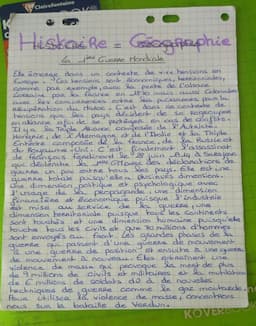 Clairefontaine
Histoire = Géographie
La 1ère Guerre Mondiale
Elle émerge dans un contexte de vives tensions en
Europe. Ces tensions sont économiques, territoriales,
comme par exemple, avec la perte de l'Alsace
Lorraine par la France en 1870 mais aussi Coloniales
avec les concurrences entre les puissances pour la
domination du Monde. C'est dans ce contexte de
tensions que les pays décident de se regrouper
en alliance afin de se protéger en cas de conflits.
Il y a la Triple Alliance composée de l'Autriche
Hongrie, de l'Allemagne et de l'Italie et la Triple
Entente composée de la France, de la Russie et
du Royaume-Uni. C'est finalement l'assassinat
de François Ferdinand le 28 juin 1914 à Sarajevo
qui déclenche la 1ère GM avec des déclarations de
guerre un peu entre tous les pays. Elle est une
guerre totale puisqu'elle a plusieurs dimensions.
Une dimension politique et psychologique avec
l'usage de la propagande, une dimension
financière et économique puisque l'industrie
est mise au service de la guerre, une
dimension territoriale puisque tous les continents
sont touchés et une dimension humaine puisqu'elle
touche tous les civils et que 70 millions d'hommes
sont envoyés au front. Les grandes phases de la
guerre qui passent d'une guerre de mouvement
à une guerre de position et ensuite à une guerre
de mouvement à nouveau. Elles entraînent une
violence de masse qui provoque la mort de plus
de 9 millions de civils et militaires et la mutilation
de 6 millions de soldats dû à de nouvelles
techniques de guerre comme le gaz moutarde.
Pour illustrer la violence de masse, concentrons
nous sur la bataille de Verdun.
KOVER